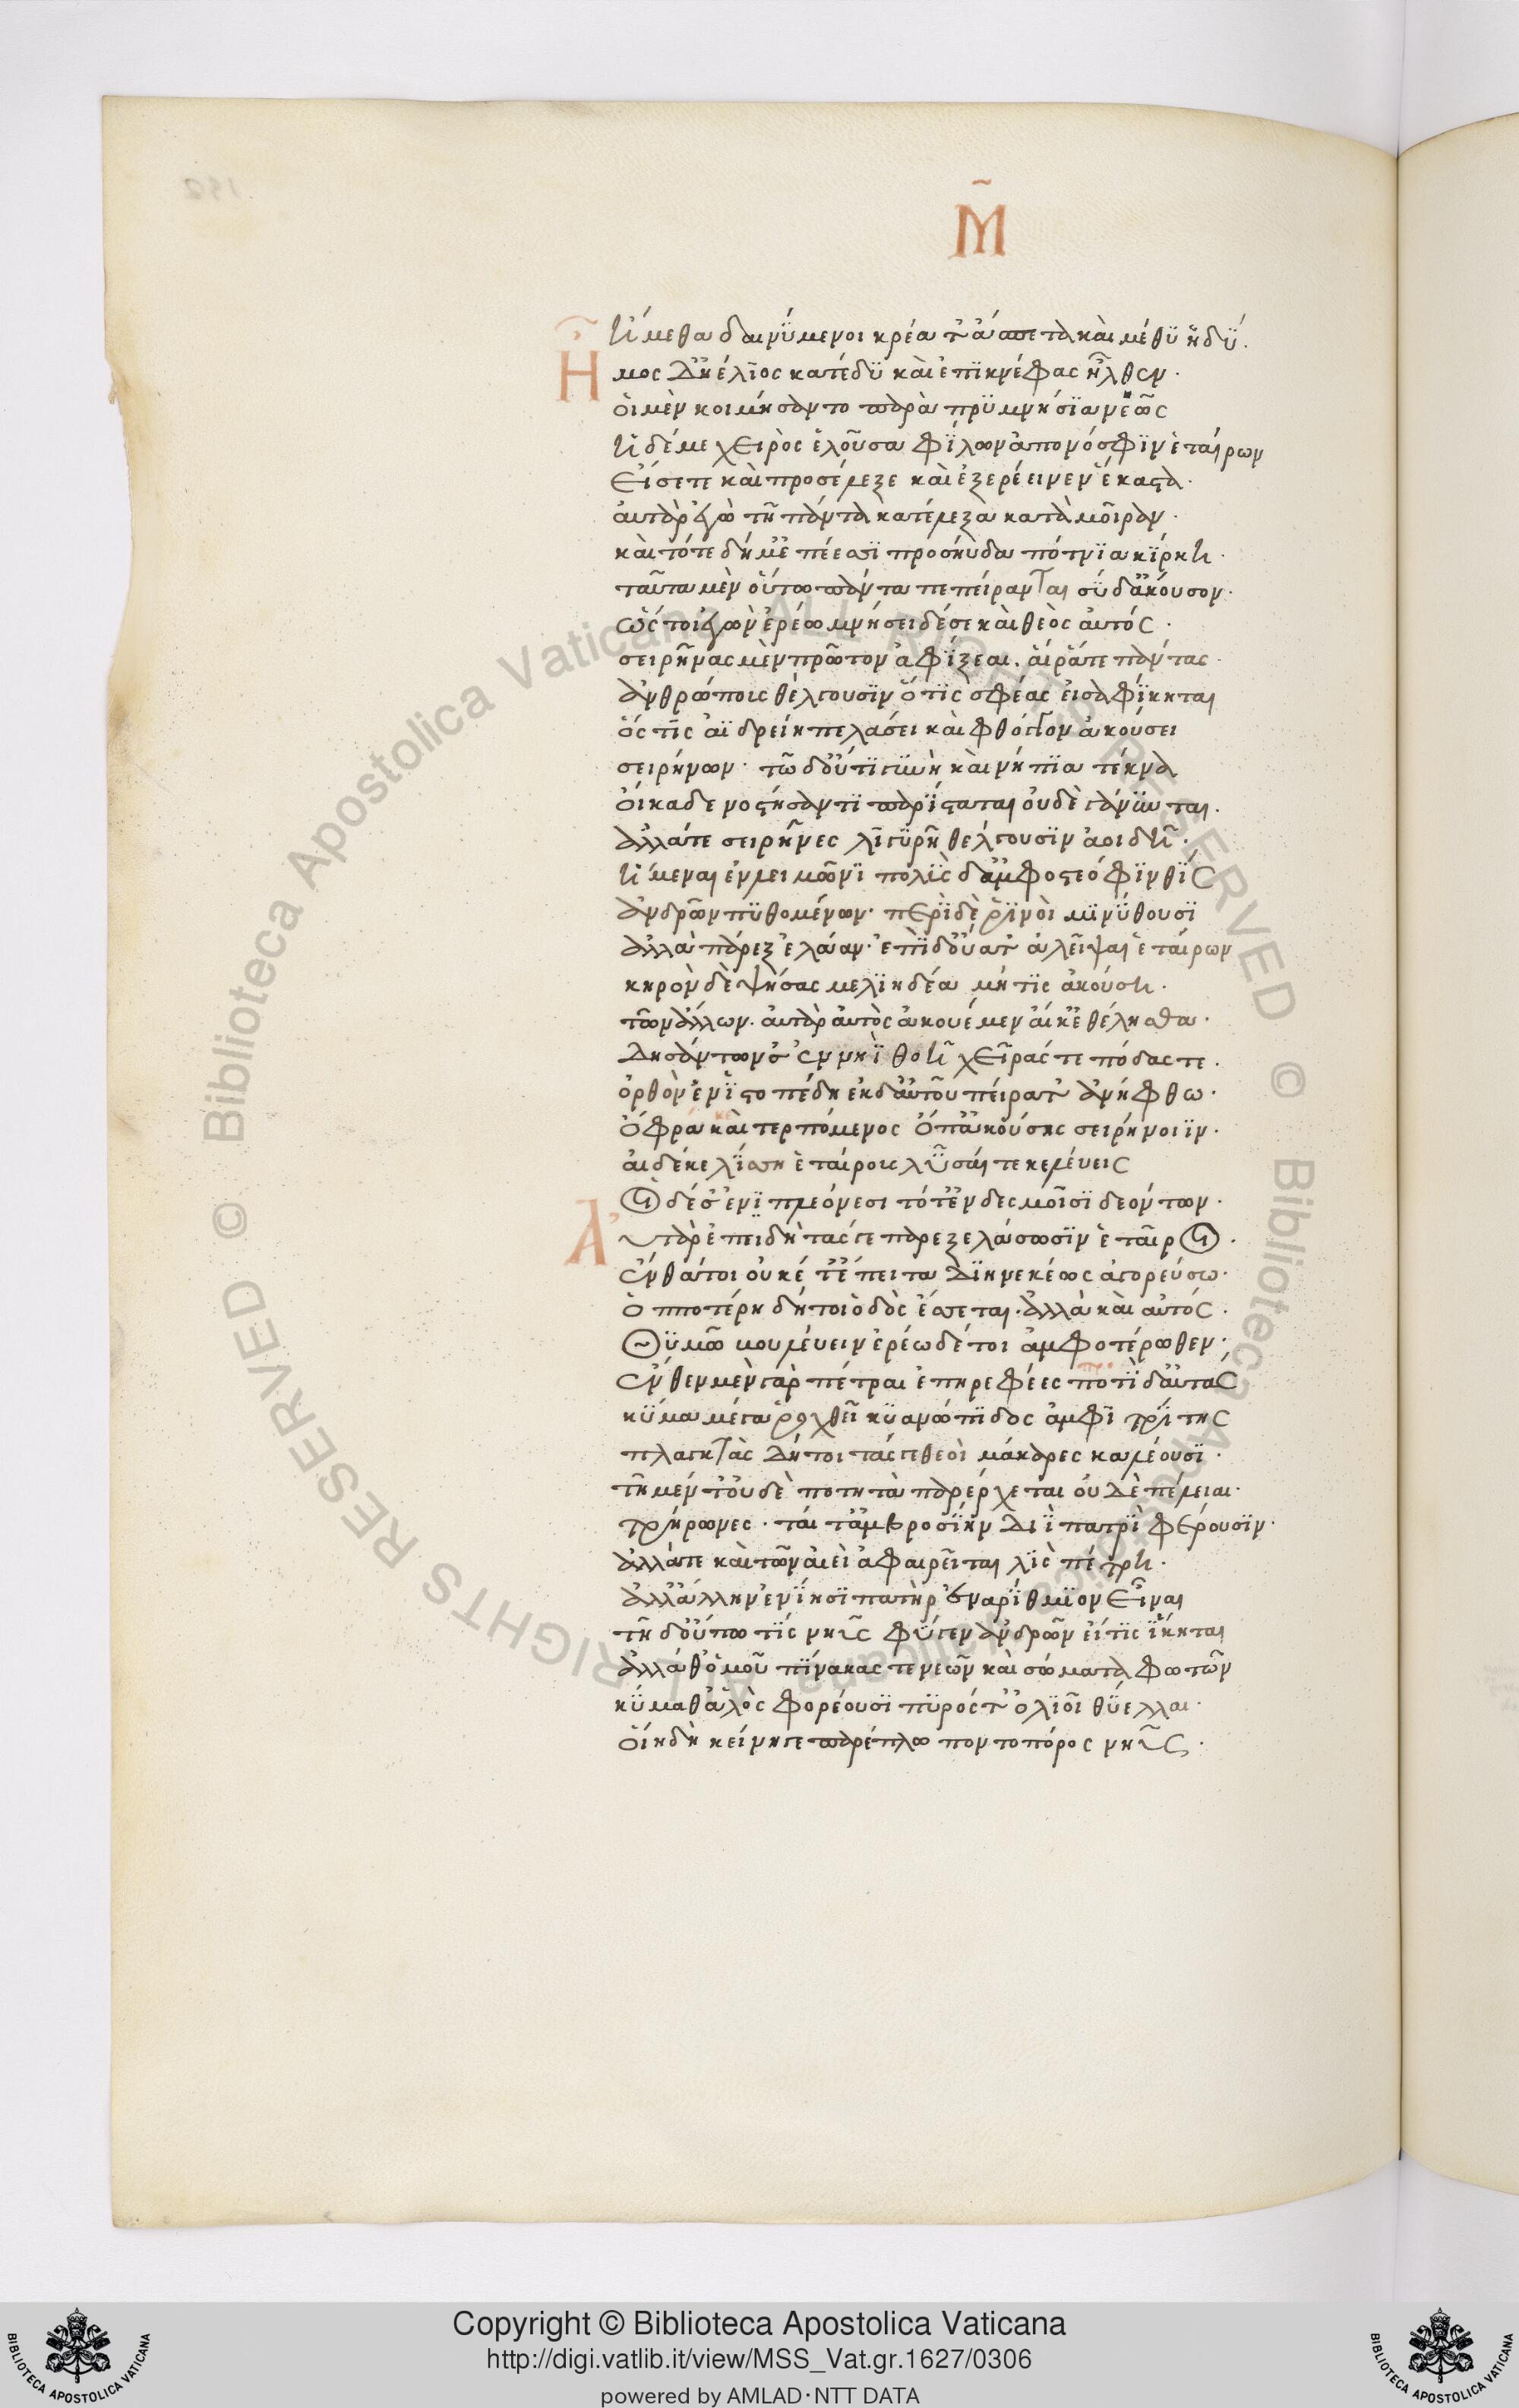 Μ̃
ἥμεθα δαινύμενοι κρέα τ' ἄσπετα καὶ μέθϋ ἡδΰ.
Ἦμος δ' ἠέλϊος κατέδϋ καὶ ἐπϊ κνέφας ἦλθεν.
ὁι μὲν κοιμήσαντο παρὰ πρϋμνήσϊα νεῶς
ἡ δέ με χειρὸς ἑλοῦσα φΐλων ἀπονόσφϊν ἑταίρων
εἷσέ τε καὶ προσέλεξε καὶ ἐξερέεινεν ἕκαστα.
ἀυτὰρ ἐγὼ τῆ πάντα κατέλεξα κατὰ μοῖραν.
καὶ τότε δή μ' ἐπέεσσϊ προσηύδα πότνϊα κΐρκη.
ταῦτα μὲν οὕτω πάντα πεπείρανται σΰ δ' ἄκουσον.
ὥς τοι ἐγὼν ἐρέω μνήσει δέ σε καὶ θεὸς ἀυτός.
σειρῆνας μὲν πρῶτον ἀφΐξεαι. ἅι ῥά τε πάντας
ἀνθρώποις θέλγουσϊν ὅτϊς σφέας ἐισαφΐκηται
ὅς τϊς ἀϊδρείη πελάσει καὶ φθόγγον ἀκούσει
σειρήνων. τῶ δ' οὔτϊ γϋνὴ καὶ νήπϊα τέκνα
ὄικαδε νοστήσαντϊ παρΐσταται οὐδὲ γάνϋνται.
ἀλλά τε σειρῆνες λϊγϋρῆ θέλγουσϊν ἀοιδῆ.
ἥμεναι ἐν λειμῶνϊ πολϊς δ' ἀμφ' ὀστεόφϊν θΐς
ἀνδρῶν πϋθομένων. περϊ δὲ ῥϊνοὶ μϊνΰθουσϊ
ἀλλὰ πὰρεξ ἐλάαν. ἐπϊ δ' οὔατ' ἀλεῖψαι ἑταίρων
κηρὸν δεψήσας μελϊηδέα μήτϊς ἀκούση.
τῶν ἄλλων. ἀυτὰρ ἀυτὸς ἀκουέμεν ἄι κ' ἐθέλησθα.
δησάντων σ' ἐν νηῒ θοῆ χεῖράς τε πόδας τε.
ὀρθὸν ἐν ἱστοπέδη ἐκ δ' ἀυτοῦ πείρατ' ἀνήφθω.
ὄφρά κε τερπόμενος ὄπ' ἀκούσης σειρήνοιϊν.
ἀι δέ κε λΐσσηι ἑτάρους λῦσάι τε κελέυεις
οἱ δέ σ' ἐνϊ πλεόνεσι τότ' ἐν δεσμοῖσϊ δεόντων.
Ἀυτὰρ ἐπειδὴ τάς γε παρεξελάσωσϊν ἑταῖροι.
ἔνθά τοι οὐκέτ' ἔπειτα δϊηνεκέως ἀγορέυσω.
ὁπποτέρη δή τοι ὁδὸς ἔσσεται. ἀλλὰ καὶ αὐτός.
θϋμῶ βουλέυειν ἐρέω δέ τοι ἀμφοτέρωθεν.
ἔνθεν μὲν γὰρ πέτραι ἐπηρεφέες ποτϊ δ' ἀυτάς
κῦμα μέγα ῥοχθεῖ κϋανώπϊδος ἀμφϊτρΐτης
πλαγκτὰς δή τοι τάς γε θεοὶ μάκαρες καλέουσϊ.
τῆ μέν τ' οὐδὲ ποτητὰ παρέρχεται οὐδὲ πέλειαι.
τρήρωνες. τάι τ' ἀμβροσΐην δϊῒ πατρὶ φέρουσϊν.
ἀλλά τε καὶ τῶν ἀιεὶ ἀφαιρεῖται λϊς πέτρη.
ἀλλ' ἄλλην ἐνΐησϊ πατὴρ ἐναρΐθμϊον εἶναι
τῆ δ' οὔπω τΐς νηῦς φΰγεν ἀνδρῶν εἴτϊς ἵκηται
ἀλλά θ' ὁμοῦ πΐνακάς τε νεῶν καὶ σώματα φωτῶν
κΰμαθ' ἁλὸς φορέουσϊ πϋρός τ' ὀλϊοῖ θΰελλαι.
ὄιη δὴ κείνη γε παρέπλω ποντοπόρος νηῦς.
Copyright © Biblioteca Apostolica Vaticana
http://digi.vatlib.it/view/MSS_Vat.gr.1627/0306
powered by AMLAD·NTT DATA